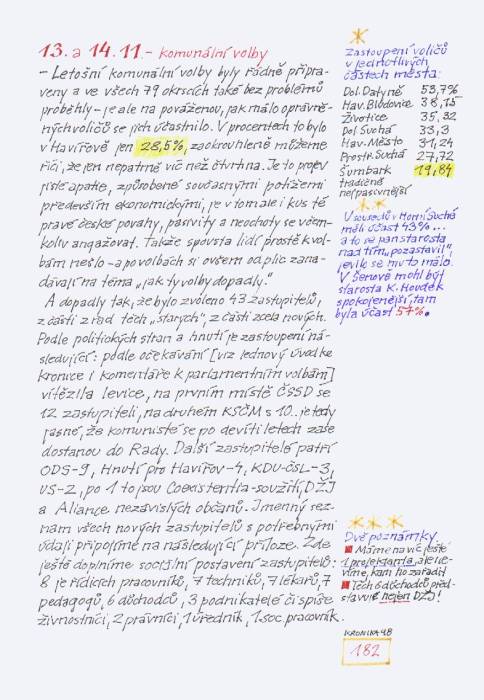 13. a 14.11. - komunální volby
- Letošní komunální volby byly řádně připra-
veny a ve všech 79 okrscích také bez problémů
proběhly - je ale na pováženou, jak málo oprávně-
ných voličů se jich účastnilo. V procentech to bylo
v Havířově jen 28,5%, zaokrouhleně můžeme
říci, že jen nepatrně víc než čtvrtina. Je to projev
jisté apatie, způsobené současnými potížemi
především ekonomickými, je v tom ale i kus té
pravé české povahy, pasivity a neochoty se v čem-
koliv angažovat. Takže spousta lidí prostě k vol-
bám nešlo - a po volbách si ovšem od plic zana-
dávají na téma „jak ty volby dopadly."
A dopadly tak, že bylo zvoleno 43 zastupitelů,
z části z řad těch „starých", z části zcela nových.
Podle politických stran a hnutí je zastoupení ná-
sledující: podle očekávání [viz lednový úvod ke
kronice i komentáře k parlamentním volbám]
vítězila levice, na prvním místě ČSSD se
12 zastupiteli, na druhém KSČM s 10.. je tedy
jasné, že komunisté se po devíti letech zase
dostanou do Rady. Další zastupitelé patří
ODS-9, Hnutí pro Havířov-4, KDU-ČSL-3,
US-2, po 1 to jsou Coexistentia-soužití, DŽJ
a Aliance nezávislých občanů. Jmenný sez-
nam všech nových zastupitelů s potřebnými
údaji připojíme na následující příloze. Zde
ještě doplníme sociální postavení zastupitelů:
8 je řídících pracovníků, 7 techniků, 7 lékařů, 7
pedagogů, 6 důchodců, 3 podnikatelé či spíše
živnostníci, 2 právníci, 1 úředník, 1 soc. pracovník.
Zastoupení voličů
v jednotlivých
částech města:
Dol. Datyně 53,7%
Hav. Bludovice 38,15
Životice 35,32
Dol. Suchá 33,3
Hav.-Město 31,24
Prostř. Suchá 27,72
Šumbark 19,84
tradičně
nejpasivnější
V sousedů v Horní Suché
měli účast 43%...
a to se pan starosta
nad tím „pozastavil",
jevilo se mu to málo.
V Šenově mohl být
starosta K. Houdek
spokojenější, tam
byla účast 57%.
Dvě poznámky
Máme na víc ještě
1 projektanta, ale ne-
víme, kam ho zařadit
Těch 6 důchodců před-
stavuje nejen DŽJ!
KRONIKA 98
182